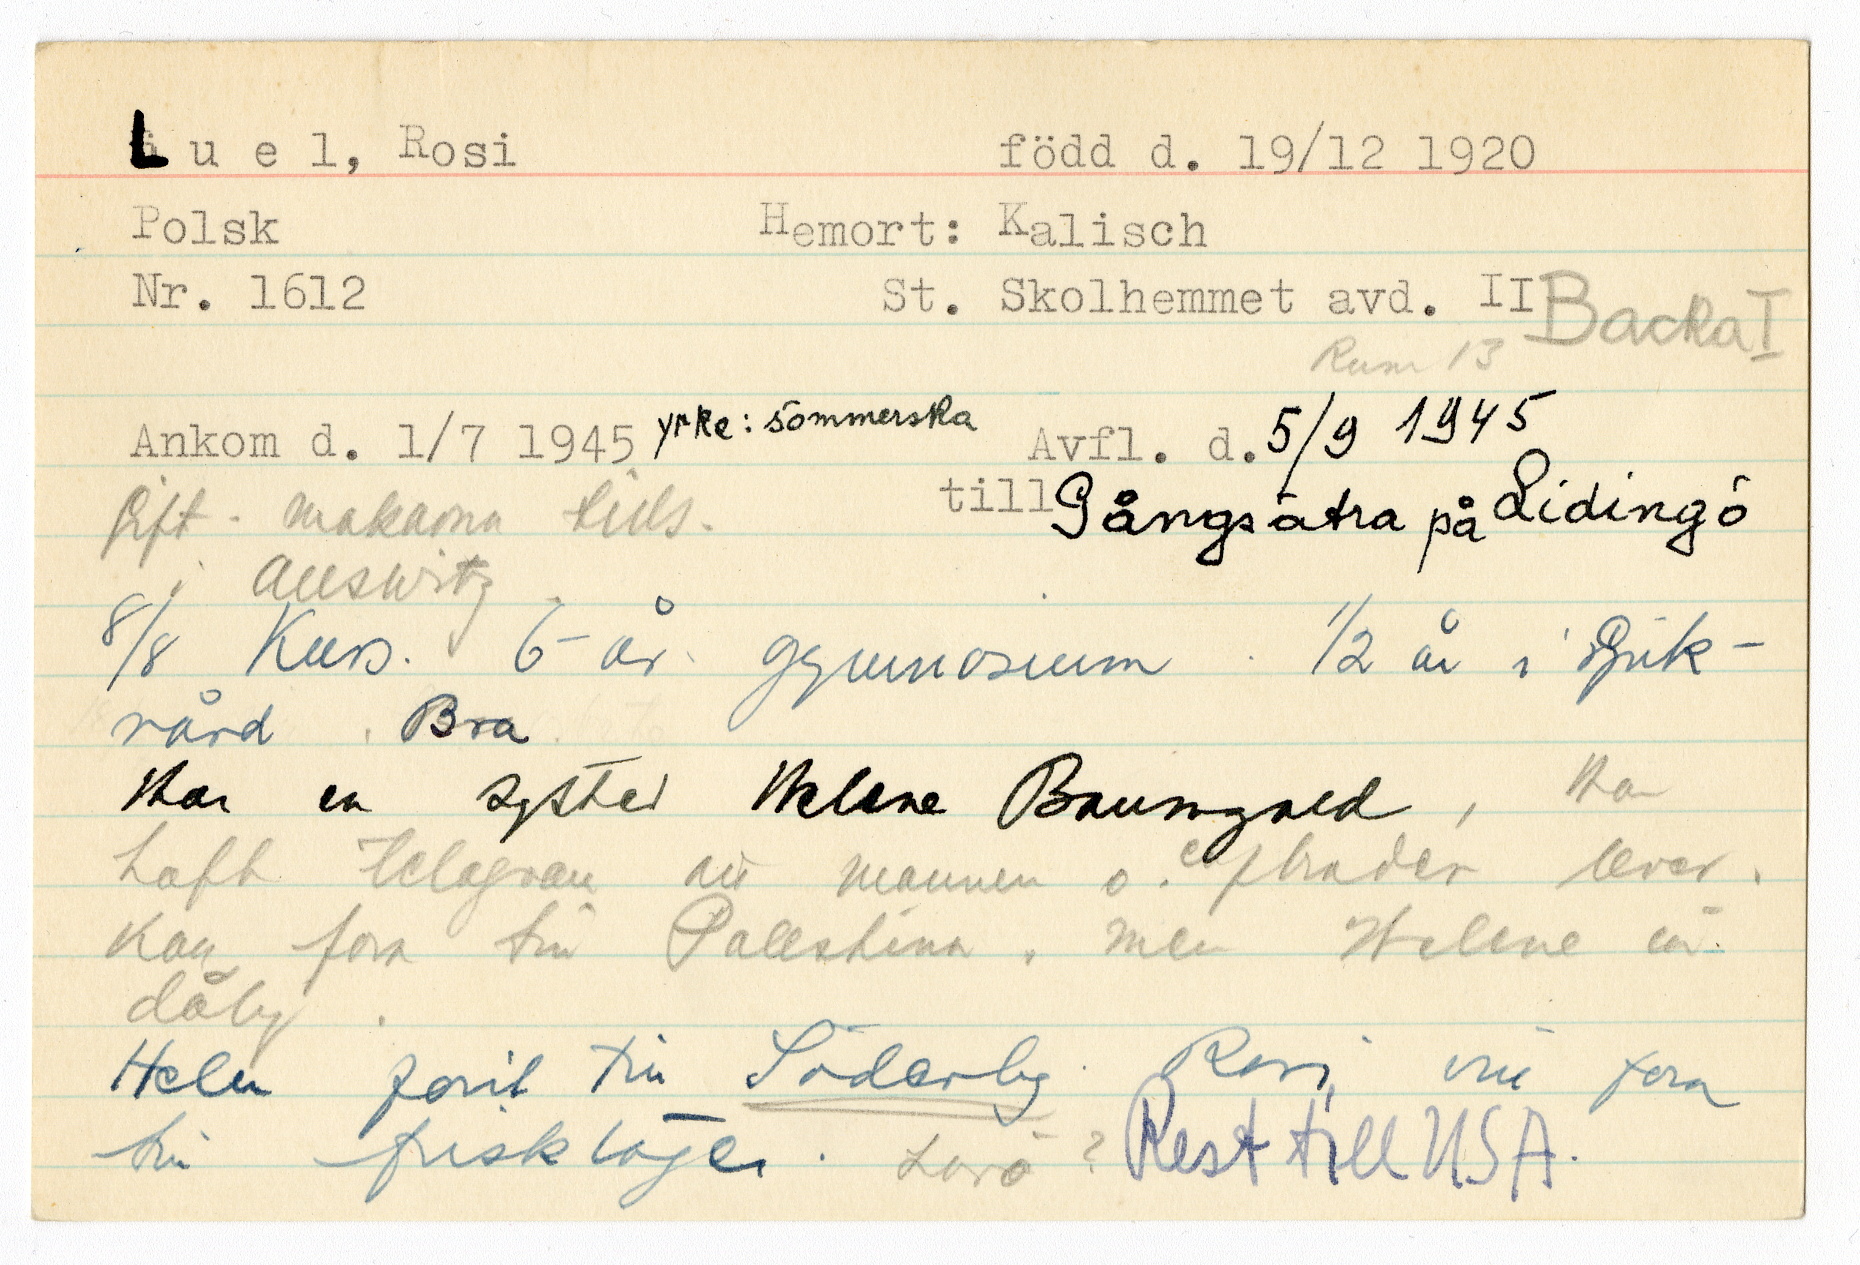 Luel, Rosi född d. 19/12 1920
Polsk Hemort: Kalisch
Nr. 1612 St. Skolhemmet avd. II Backa I
Rum 13
Ankom d. 1/7 1945 yrke: sömmerska Avfl. d. 5/9 1945
till Gångsätra på Lidingö
Gift - makarna tills.
i Auswitz.
8/8 Kurs. 6 år gymnasium. 1/2 år i sjuk-
vård. Bra.
Har en syster Helene Baumgold, Har
haft telegram att mannen o. lever.
Kan fara till Palestina. men Helene är
dålig.
Helen farit till Söderby. Rosi vill fara
till friskläger. Lovö? Rest till USA.